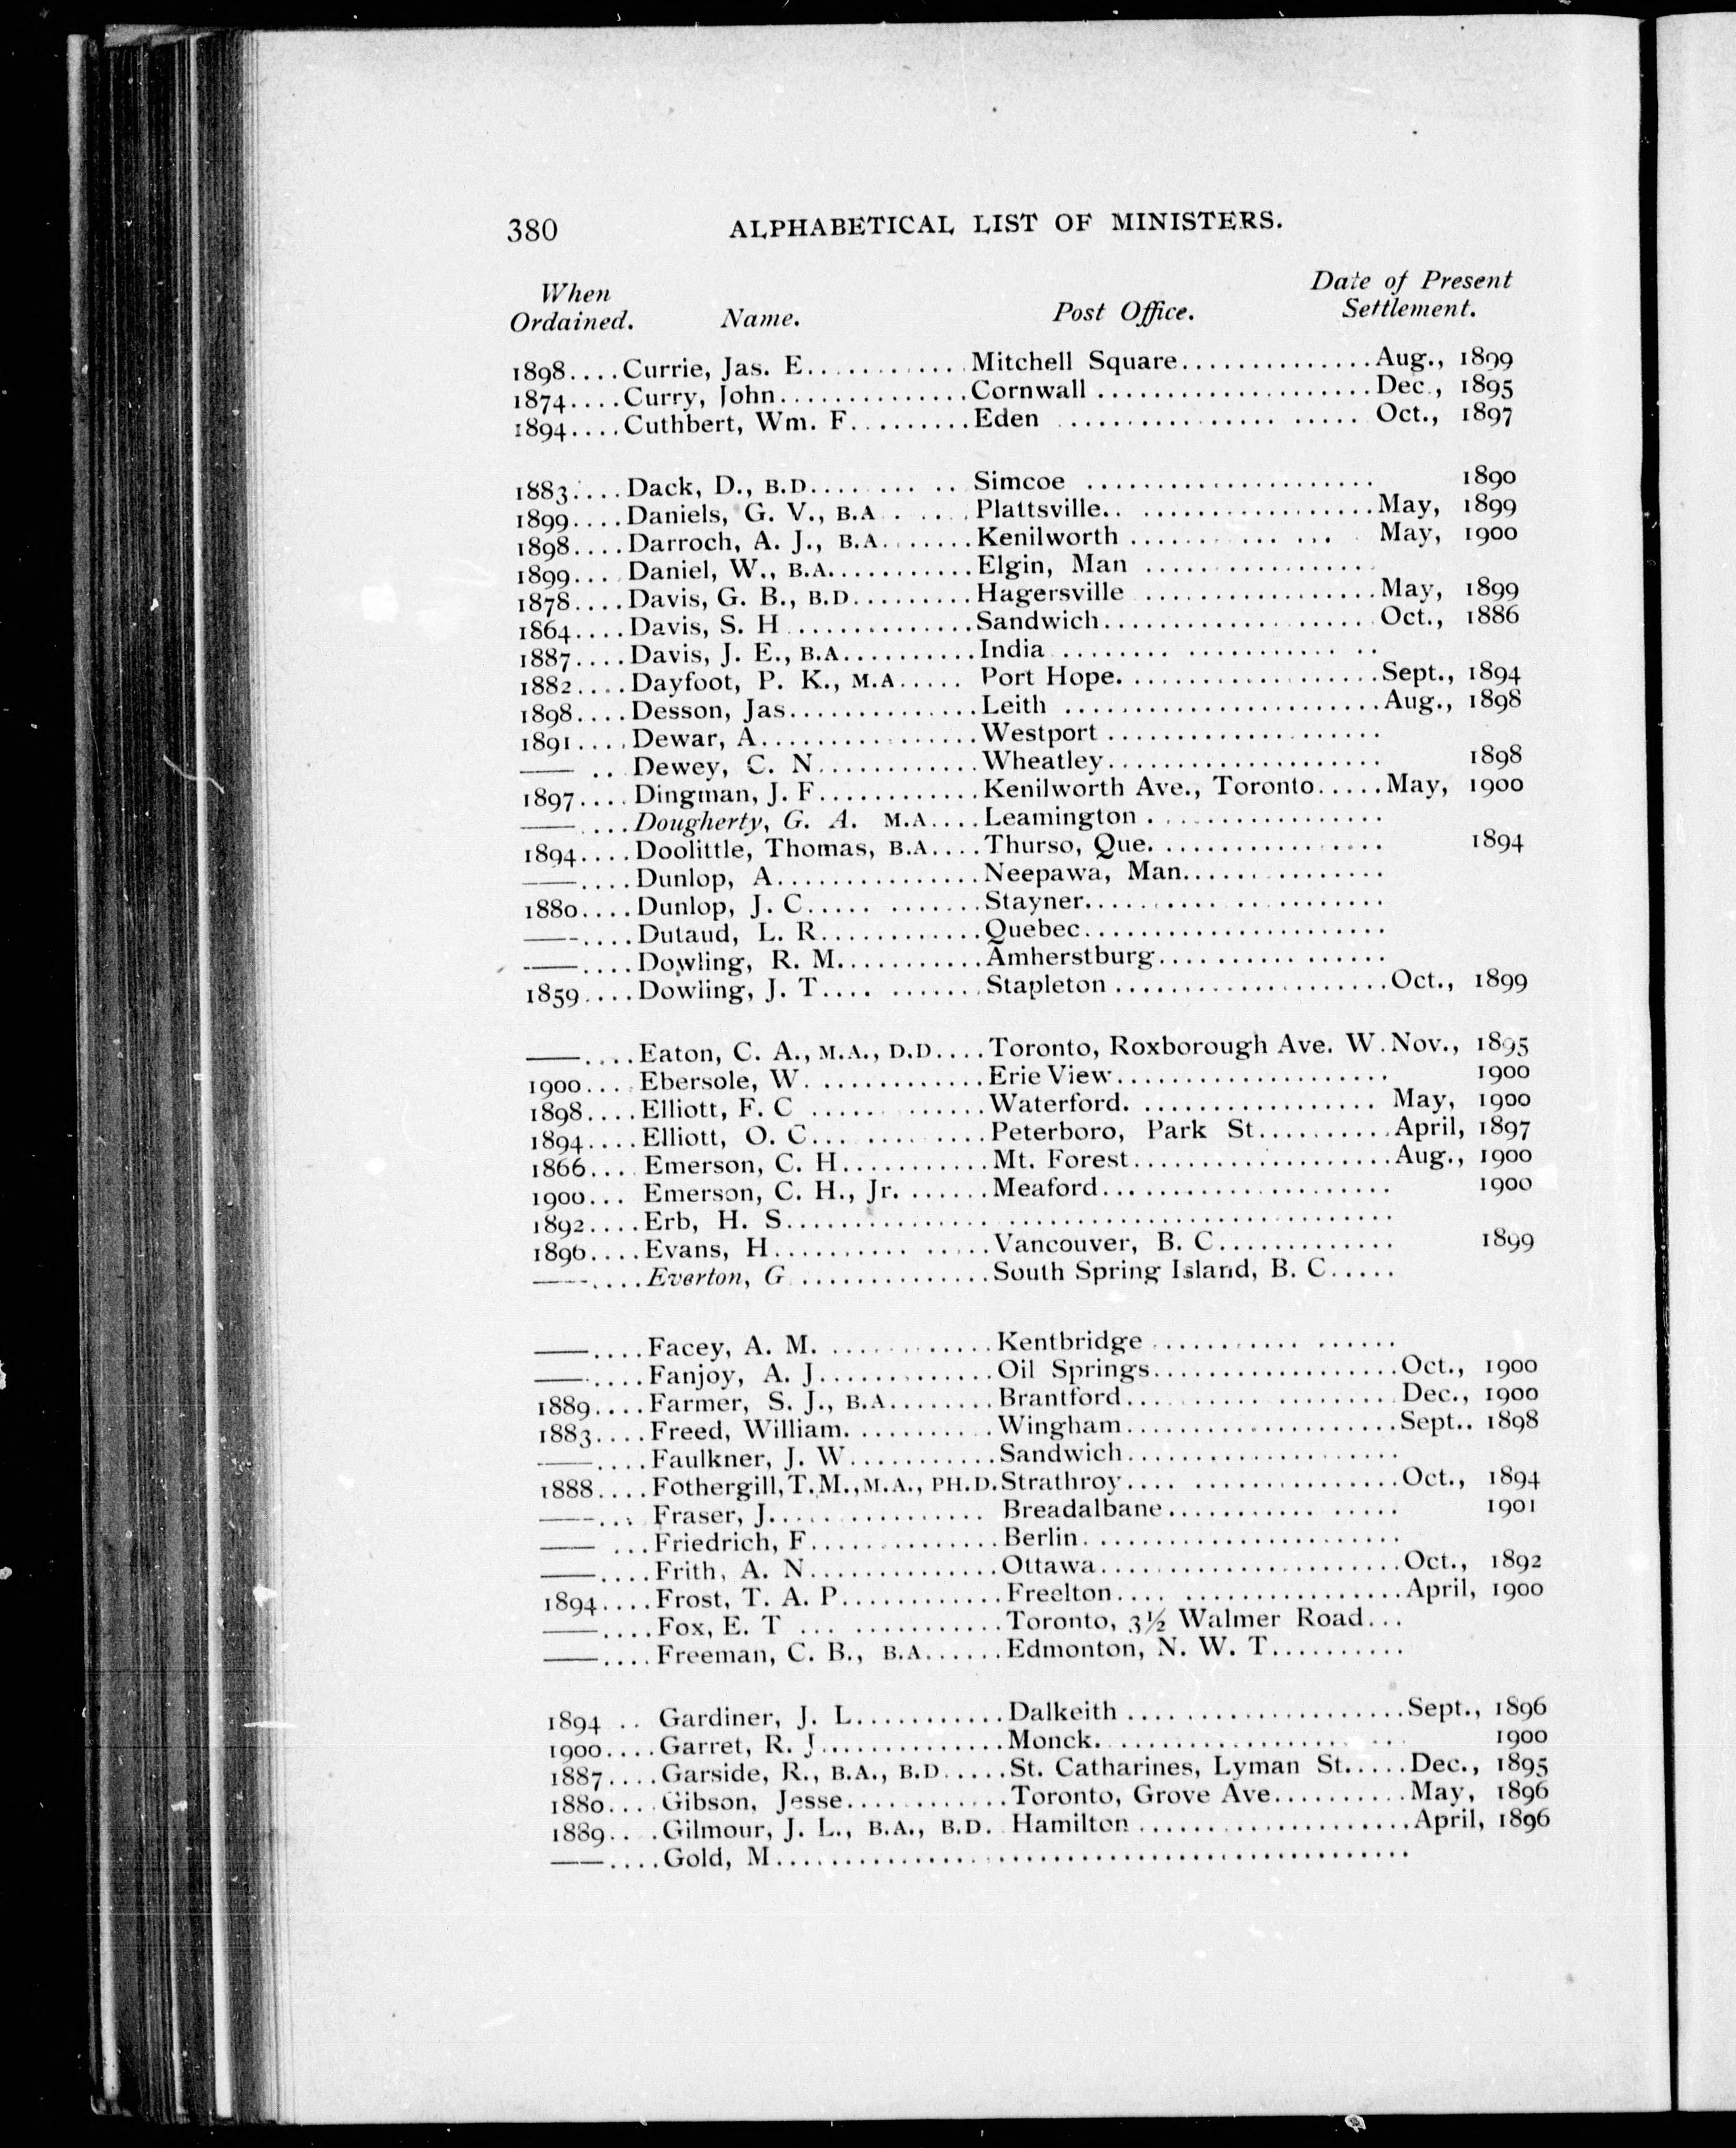 380 ALPHABETICAL LIST OF MINISTERS.
When Ordained. Name. Post Office. Date of Present Settlement.
1898....Currie, Jas. E............Mitchell Square...............Aug., 1899
1874....Curry, John..............Cornwall ....................Dec., 1895
1894....Cuthbert, Wm. F.........Eden ...................... Oct., 1897
1883....Dack, D., B.D........... Simcoe ..................... 1890
1899....Daniels, G. V., B.A ......Plattsville.. .................May, 1899
1898....Darroch, A. J., B.A.......Kenilworth ............... May, 1900
1899.... Daniel, W., B.A...........Elgin, Man .................
1878....Davis, G. B., B.D.........Hagersville .................May, 1899
1864....Davis, S. H ..............Sandwich.................... Oct., 1886
1887....Davis, J. E., B.A..........India ......................
1882....Dayfoot, P. K., M.A..... Port Hope...................Sept., 1894
1898....Desson, Jas..............Leith .......................Aug., 1898
1891....Dewar, A................Westport ....................
—— .. Dewey, C. N............Wheatley.................... 1898
1897....Dingman, J. F............Kenilworth Ave., Toronto.....May, 1900
——....Dougherty, G. A. M.A....Leamington .................
1894....Doolittle, Thomas, B.A....Thurso, Que................. 1894
——....Dunlop, A...............Neepawa, Man...............
1880....Dunlop, J. C..... .......Stayner......................
——....Dutaud, L. R............Quebec......................
——....Dowling, R. M...........Amherstburg.................
1859....Dowling, J. T.... .......Stapleton ....................Oct., 1899
——....Eaton, C. A., M.A., D.D....Toronto, Roxborough Ave. W.Nov., 1895
1900....Ebersole, W.............Erie View.................... 1900
1898....Elliott, F. C .............Waterford. ................. May, 1900
1894....Elliott, O. C.............Peterboro, Park St..........April, 1897
1866.... Emerson, C. H...........Mt. Forest...................Aug., 1900
1900... Emerson, C. H., Jr. ......Meaford..................... 1900
1892....Erb, H. S............................................
1896....Evans, H.......... .....Vancouver, B. C............. 1899
——....Everton, G ..............South Spring Island, B. C.....
——....Facey, A. M. ............Kentbridge .................
——....Fanjoy, A. J.............Oil Springs..................Oct., 1900
1889....Farmer, S. J., B.A........Brantford....................Dec., 1900
1883....Freed, William...........Wingham....................Sept.. 1898
——....Faulkner, J. W...........Sandwich....................
1888....Fothergill, T. M., M.A., PH.D.Strathroy.... ................Oct., 1894
——... Fraser, J................ Breadalbane................ 1901
—— ...Friedrich, F..............Berlin.......................
——....Frith, A. N..............Ottawa......................Oct., 1892
1894....Frost, T. A. P............Freelton.... ................April, 1900
——....Fox, E. T ... ...........Toronto, 3½ Walmer Road...
——....Freeman, C. B., B.A......Edmonton, N. W. T..........
1894 .. Gardiner, J. L...........Dalkeith ....................Sept., 1896
1900....Garret, R. J..............Monck...................... 1900
1887....Garside, R., B.A., B.D.....St. Catharines, Lyman St.....Dec., 1895
1880....Gibson, Jesse............Toronto, Grove Ave..........May, 1896
1889....Gilmour, J. L., B.A., B.D. Hamilton ....................April, 1896
——....Gold, M..............................................